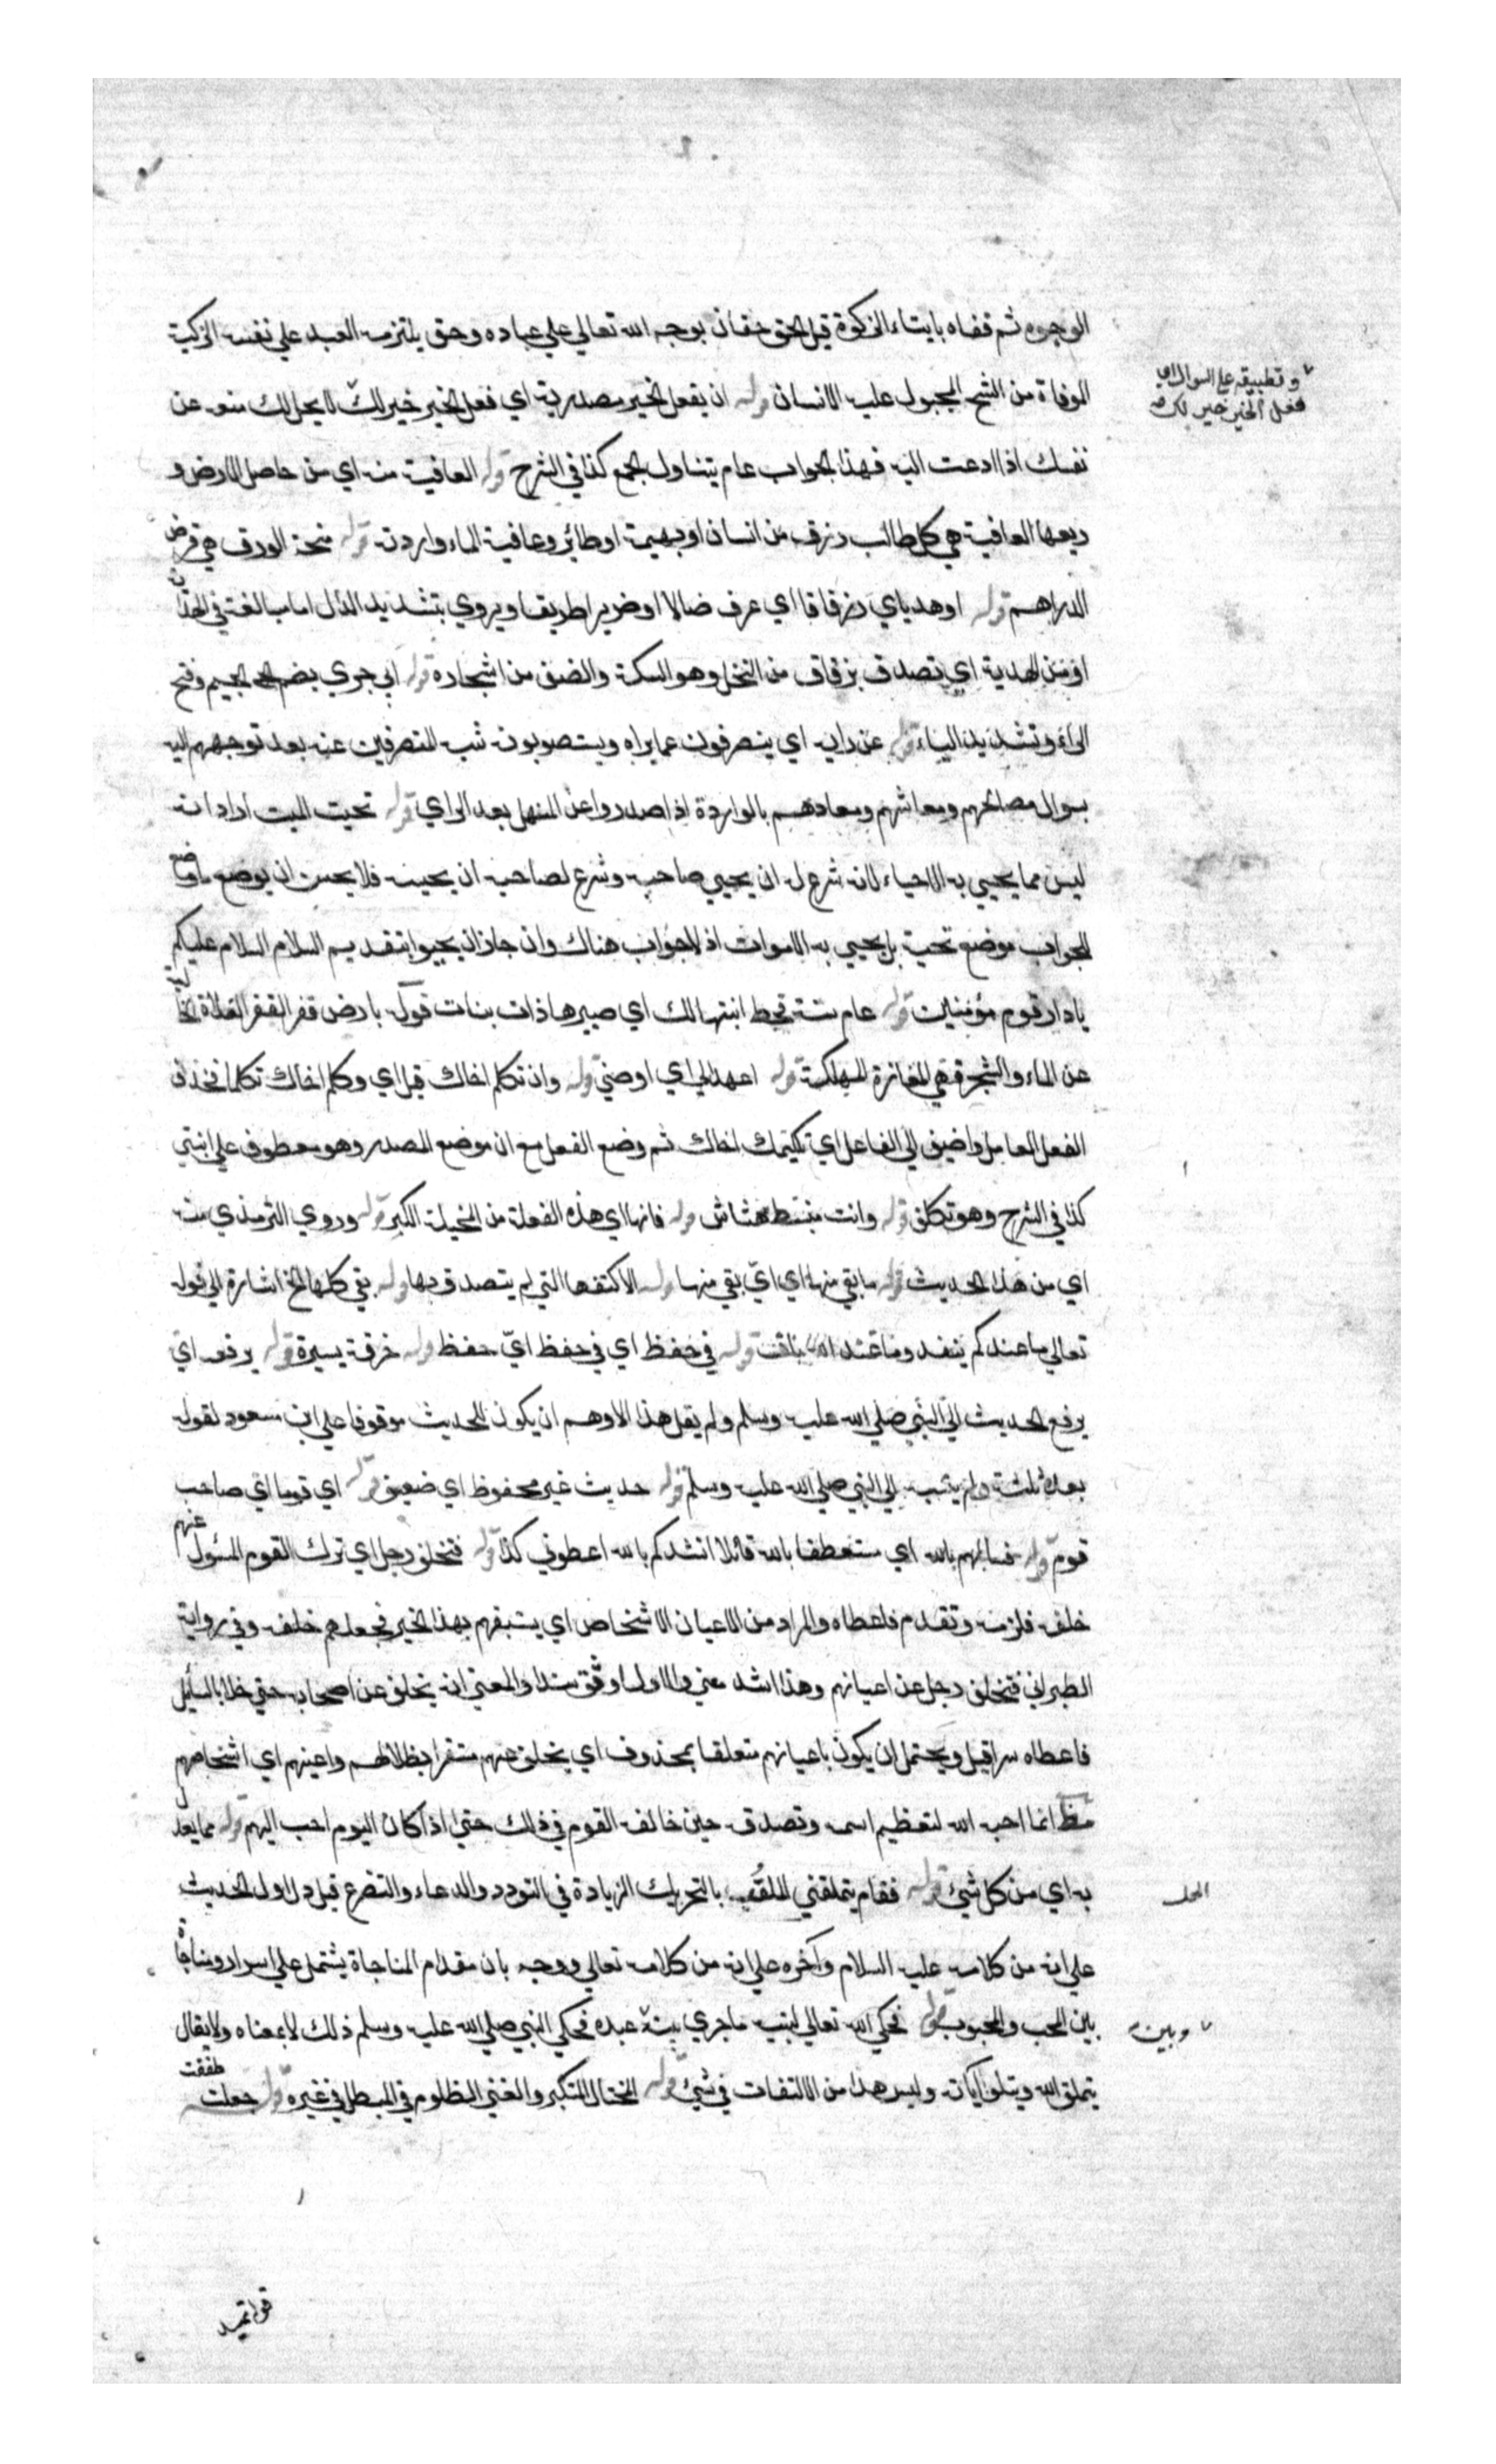 الوجوه ثم قفاه بايتاء الزكوة قيل الحق حقان يوجبه الله تعالي علي عباده وحق يلتزمه العبد علي نفسه الزكية
الموقاة من الشح المجبول عليه الانسان قوله ان يفعل الخير مصدرية اي فعل الخير خير لك لا يحل لك منعه عن
وتطبيقه علي السوال اي
فعل الخير خير لك
نفسك اذا ادعت اليه فهذا الجواب عام يتناول الجمع كذا في الشرح قوله العافية منه اي من حاصل الارض و
ريعها العافية هي كل طالب رزق من انسان او بهيمة او طائر وعافية الماء واردته قوله منحة الورق هي قرض
الدراهم قوله او هدي اي زقاقا اي عرف ضالا او ضريرا طريقا ويروي بتشديد الدال اما مبالغة في الهداية
او من الهدية اي تصدق بزقاق من النخل وهو السكة والصف من اشجاره قوله ابي جري بضم الجيم وفتح
الراء وتشديد الياء قوله عن رايه اي ينصرفون عما يراه ويستصوبونه شبه المنصرفين عنه بعد توجههم اليه
بسوال مصالحهم ومعاشهم ومعادهم بالواردة اذا صدروا عن المنهل بعد الراي قوله تحيت الميت اراد انه
ليس مما يحيي به الاحياء لانه شرع له ان يحيي صاحبه وشرع لصاحبه ان يجيبه فلا يحسن ان يوضع ما وضع
للجواب موضع تحية بل يحيي به الاموات اذ لا جواب هناك وان جاز ان يحيوا بتقديم السلام السلام عليكم
يا دار قوم مؤمنين قوله عام سنة قحط انبتها لك اي صيرها ذات بنات قوله بارض قفر القفر الفلاة الخالية
عن الماء والشجر فهي المفازة المهلكة قوله اعهد الي اي اوصني قوله وان تكلم اخاك قيل اي وكلم اخاك تكلما فحذف
الفعل العامل واضيف الي الفاعل اي تكليمك اخاك ثم وضع الفعل مع ان موضع المصدر وهو معطوف علي انبتي
كذا في الشرح وهو تكلف قوله وانت منبسط هشاش قوله فانها اي هذه الفعلة من المخيلة الكبر قوله وروي الترمذي منه
اي من هذا الحديث قوله ما بقي منها اي ايّ بقي منها قوله الا كتفها التي لم يتصدق بها قوله بقي كلها الخ اشارة الي قوله
تعالي ما عندكم ينفد وما عند الله باق قوله في حفظ اي في حفظ ايّ حفظ قوله خرقة يسيرة قوله يرفعه اي
يرفع الحديث الي النبي صلي الله عليه وسلم ولم يقل هذا لاوهم ان يكون الحديث موقوفا علي ابن مسعود لقوله
بعده ثلثة ولم ينسبه الي النبي صلي الله عليه وسلم قوله حديث غير محفوظ اي ضعيف قوله اي قوما اي صاحب
قوم قوله فسالهم بالله اي مستعطفا بالله قائلا انشدكم بالله اعطوني كذا قوله فتخلف رجل اي ترك القوم المسؤل عنهم
خلفه فلزمه وتقدم فاعطاه والمراد من الاعيان الاشخاص اي يسبقهم بهذا الخير فجعلهم خلفه وفي رواية
الطبراني فتخلف رجل عن اعيانهم وهذا اشد معني والاول اوثق سندا والمعني انه يخلف عن اصحابه حتي خلا بالسائل
فاعطاه سرا قيل ويحتمل ان يكون باعيانهم متعلقا بمحذوف اي يخلف عنهم مستترا بظلالهم واعينهم اي اشخاصهم
مظ انما احبه الله لتعظيم اسمه وتصدقه حين خالف القوم في ذلك حتي اذا كان اليوم احب اليهم قوله مما يعدل
به اي من كل شيئ قوله فقام يتملقني الملق بالتحريك الزيادة في التودد والدعاء والتضرع قيل دل اول الحديث
المحل
علي انه من كلامه عليه السلام وآخره علي انه من كلامه تعالي ووجه بان مقام المناجاة يشتمل علي اسرار ومناجاة
بين المحب والمحبوب قوله فحكي الله تعالي لنبيه ما جري بينه عبده فحكي النبي صلي الله عليه وسلم ذلك لا بمعناه ولا يقال
وبين
يتملق الله ويتلو آياته وليس هذا من الالتفات في شيئ قوله المختال المتكبر والغني الظلوم في المطل في غيره قوله جعلت
طفقت